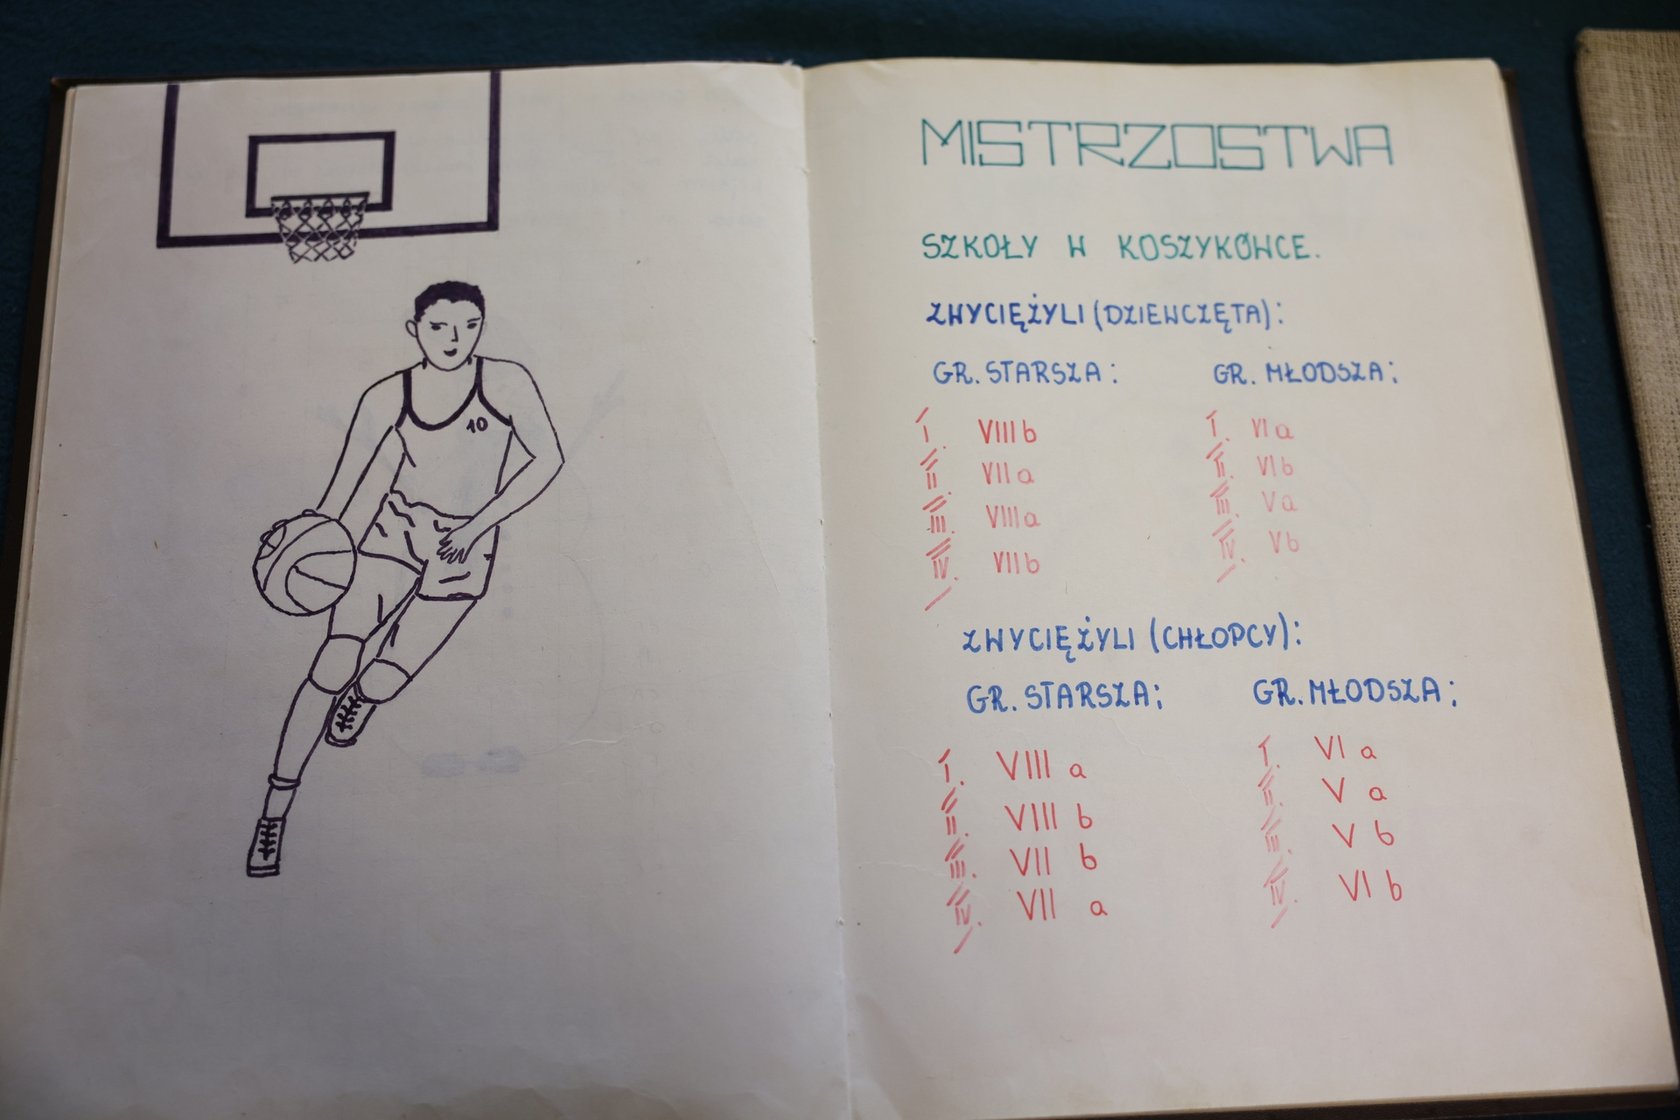 10
MISTRZOSTWA
SZKOŁY W KOSZYKÓWCE.
ZWYCIĘŻYLI (DZIEWCZĘTA):
GR. STARSZA: GR. MŁODSZA:
I. VIII b I. VI a
II. VII a II. VI b
III. VIII a III. V a
IV. VII b IV. V b
ZWYCIĘŻYLI (CHŁOPCY):
GR. STARSZA: GR. MŁODSZA:
I. VIII a I. VI a
II. VIII b II. V a
III. VII b III. V b
IV. VII a IV. VI b